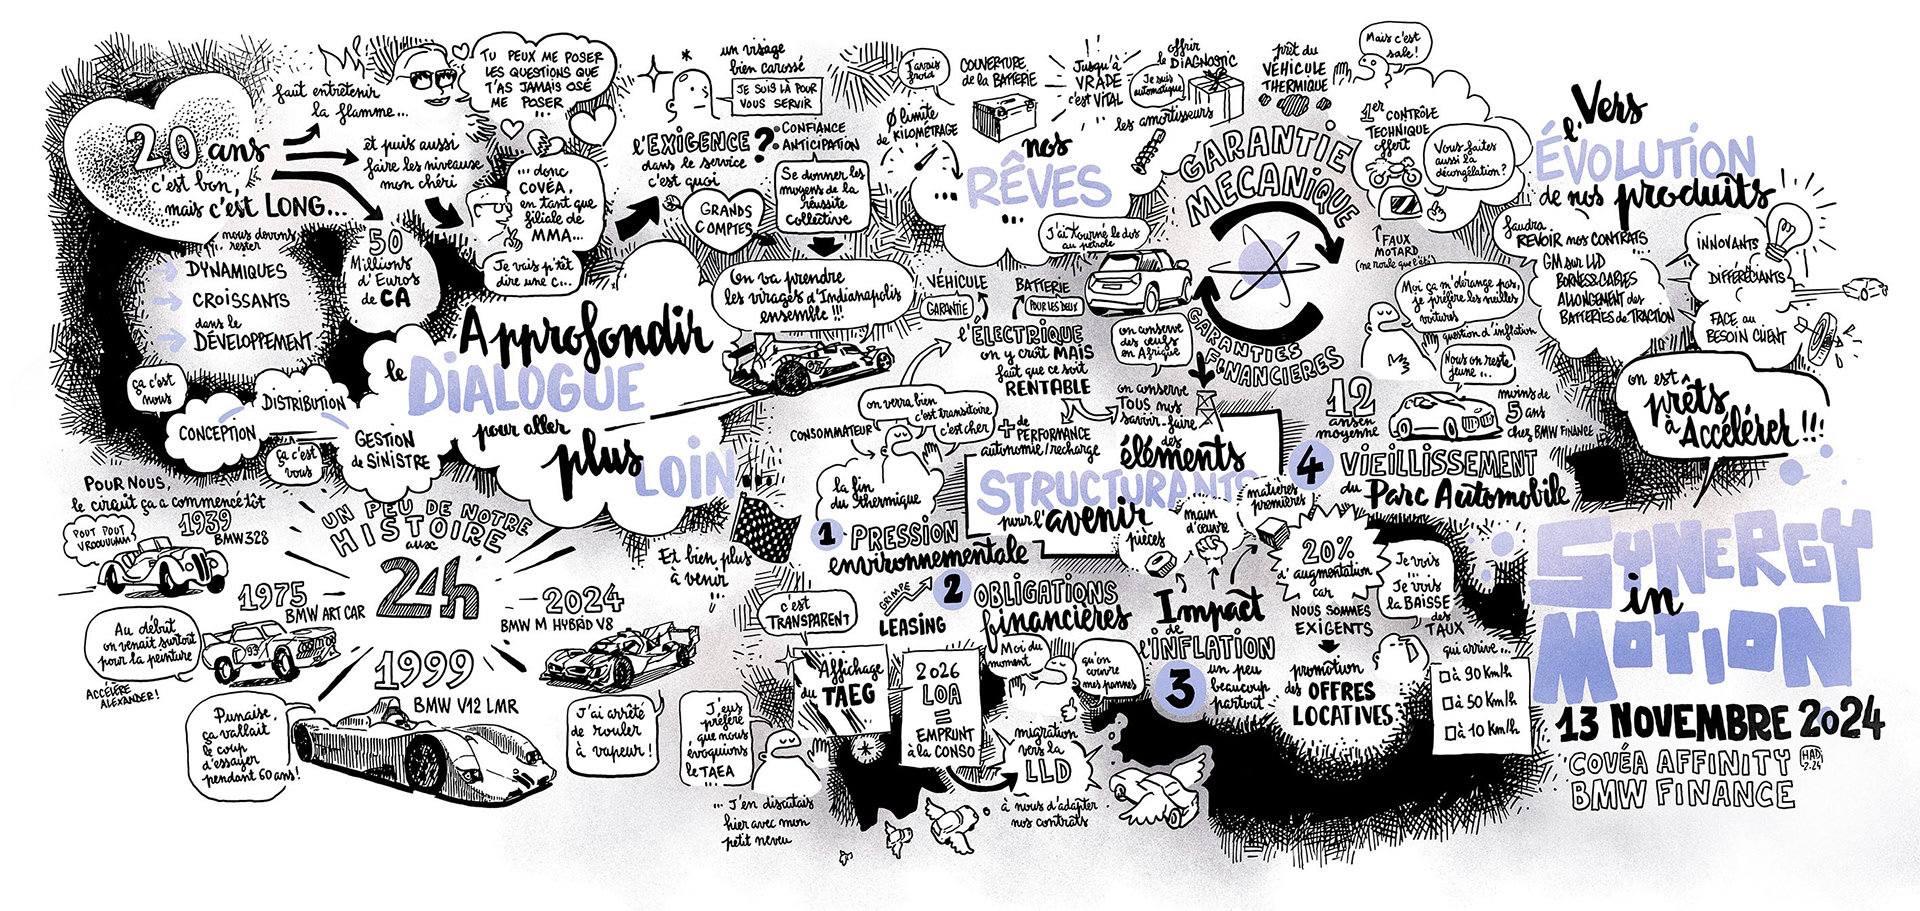 20 ans
c'est bon,
mais c'est LONG...
faut entretenir
la flamme...
et puis aussi
faire les niveaux
mon chéri
TU PEUX ME POSER
LES QUESTIONS QUE
T'AS JAMAIS OSÉ
ME POSER
... donc
COVÉA,
en tant que
filiale de
MMA...
Je vais p'têt
dire une c...
50
Millions
d'Euros
de CA
nous devons
rester
DYNAMIQUES
CROISSANTS
dans le
DÉVELOPPEMENT
ça c'est
nous
CONCEPTION
DISTRIBUTION
ça c'est
vous
GESTION
de SINISTRE
Approfondir
le DIALOGUE
pour aller
plus LOIN...
un visage
bien carossé
JE SUIS LÀ POUR
VOUS SERVIR
l'EXIGENCE ?
dans le service
c'est quoi
CONFIANCE
ANTICIPATION
GRANDS
COMPTES
Se donner les
moyens de la
réussite
collective
On va prendre
les virages d'Indianapolis
ensemble !!!
POUR NOUS,
le circuit ça a commencé tôt
UN PEU DE NOTRE
HISTOIRE
aux
24h
1939
BMW 328
POUT POUT
VROOUUUMM
1975
BMW ART CAR
Au début
on venait surtout
pour la peinture
ACCÉLÈRE
ALEXANDER!
1999
BMW V12 LMR
Punaise,
ça vallait
le coup
d'essayer
pendant 60 ans!
2024
BMW M HYBRID V8
J'ai arrêté
de rouler
à vapeur!
Et bien plus
à venir
...
nos
... RÊVES
...
J'avais
froid
Ø limite
de KILOMÉTRAGE
COUVERTURE
de la BATTERIE
Jusqu'à
VRADE
c'est VITAL
offrir
le DIAGNOSTIC
Je suis
automatique
les amortisseurs
prêt du
VÉHICULE
THERMIQUE
Mais c'est
sale!
1er CONTRÔLE
TECHNIQUE
offert
Vous faites
aussi la
décongélation?
FAUX
MOTARD
(ne roule que l'été)
GARANTIE
MECANIQUE
GARANTIES
FINANCIERES
J'ai tourné le dos
au pétrole
VÉHICULE
GARANTIE
BATTERIE
POUR LES DEUX
l'ÉLECTRIQUE
on y croit MAIS
faut que ce soit
RENTABLE
+ de
PERFORMANCE
autonomie/recharge
on conserve
des œufs
en Afrique
on conserve
TOUS nos
savoir-faire
des
éléments
STRUCTURANTS
pour l'avenir
on verra bien
c'est transitoire
c'est cher
CONSOMMATEUR
la fin
du thermique
1 PRESSION
environnementale
2 OBLIGATIONS
financières
GRIMPE
LEASING
c'est
TRANSPARENT
Affichage
du TAEG
J'eus
préféré
que nous
évoquions
le TAEA
... J'en discutais
hier avec mon
petit neveu
2026
LOA
=
EMPRUNT
à la CONSO
Moi du
moment
qu'on
couvre
mes pannes
migration
vers la
LLD
à nous d'adapter
nos contrats
pièces
main
d'œuvre
matières
premières
Impact
de
l'INFLATION
3
un peu
beaucoup
partout
20%
d'augmentation
car
NOUS SOMMES
EXIGENTS
promotion
des OFFRES
LOCATIVES
Je vois
...
Je vois
la BAISSE
des
TAUX
qui arrive...
à 90 Km/h
à 50 Km/h
à 10 Km/h
Moi ça m'dérange pas,
je préfère les vieilles
voitures
question d'inflation
Nous on reste
jeune...
12
ans en
moyenne
moins de
5 ans
chez BMW FINANCE
4 VIEILLISSEMENT
du Parc Automobile
Vers
l'ÉVOLUTION
de nos produits
faudra
REVOIR nos CONTRATS
GM sur LLD
BORNES & CABLES
ALLONGEMENT des
BATTERIES de TRACTION
INNOVANTS
DIFFÉRCIANTS
FACE au
BESOIN CLIENT
on est
prêts
à Accélérer!!!
SYNERGY
in
MOTION
13 NOVEMBRE 2024
COVÉA AFFINITY
BMW FINANCE